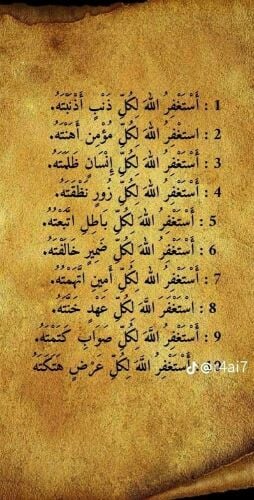 1 : أَسْتَغْفِرُ اللهَ لِكُلِّ ذَنْبٍ أَذْنَبْتَهُ.
2 : استغْفِرُ اللهَ لِكُلِّ مُؤْمِن أَهَنْتَهُ.
3 : أَسْتَغْفِرُ اللهَ لِكُلِّ إِنْسَانٍ ظَلَمَتَهُ.
4 : أَسْتَغْفِرُ اللهَ لِكُلِّ زُورٍ نَطَقَتَهُ.
5 : أَسْتَغْفِرُ اللهَ لِكُلِّ بَاطِلٍ اتَّبَعْتُهُ.
6 : أَسْتَغْفِرُ اللهَ لِكُلِّ ضَمِيرٍ خَالَفْتَهُ.
7 : أَسْتَغْفِرُ اللهَ لِكُلِّ أَمِينٍ اتَّهَمْتُهُ.
8 : اسْتَغْفَرَ اللَّهَ لِكُلِّ عَهْدٍ خَنْتَهُ.
9 : أَسْتَغْفِرُ اللَّهَ لِكُلِّ صَوَابٍ كَتَمْتَهُ.
10 : أَسْتَغْفِرُ اللَّهَ لِكُلِّ عَرْضٍ هَتَكَتَهُ
@t4ai7